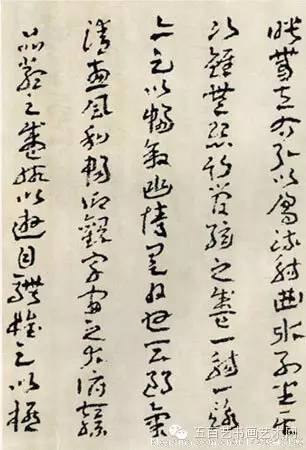 映帶左右引以為流觴曲水列坐其
次雖無絲竹管弦之盛一觴一詠
亦足以暢敘幽情是日也天朗氣
清惠風和暢仰觀宇宙之大俯察
品類之盛所以遊目騁懷足以極
五百艺书画艺术网